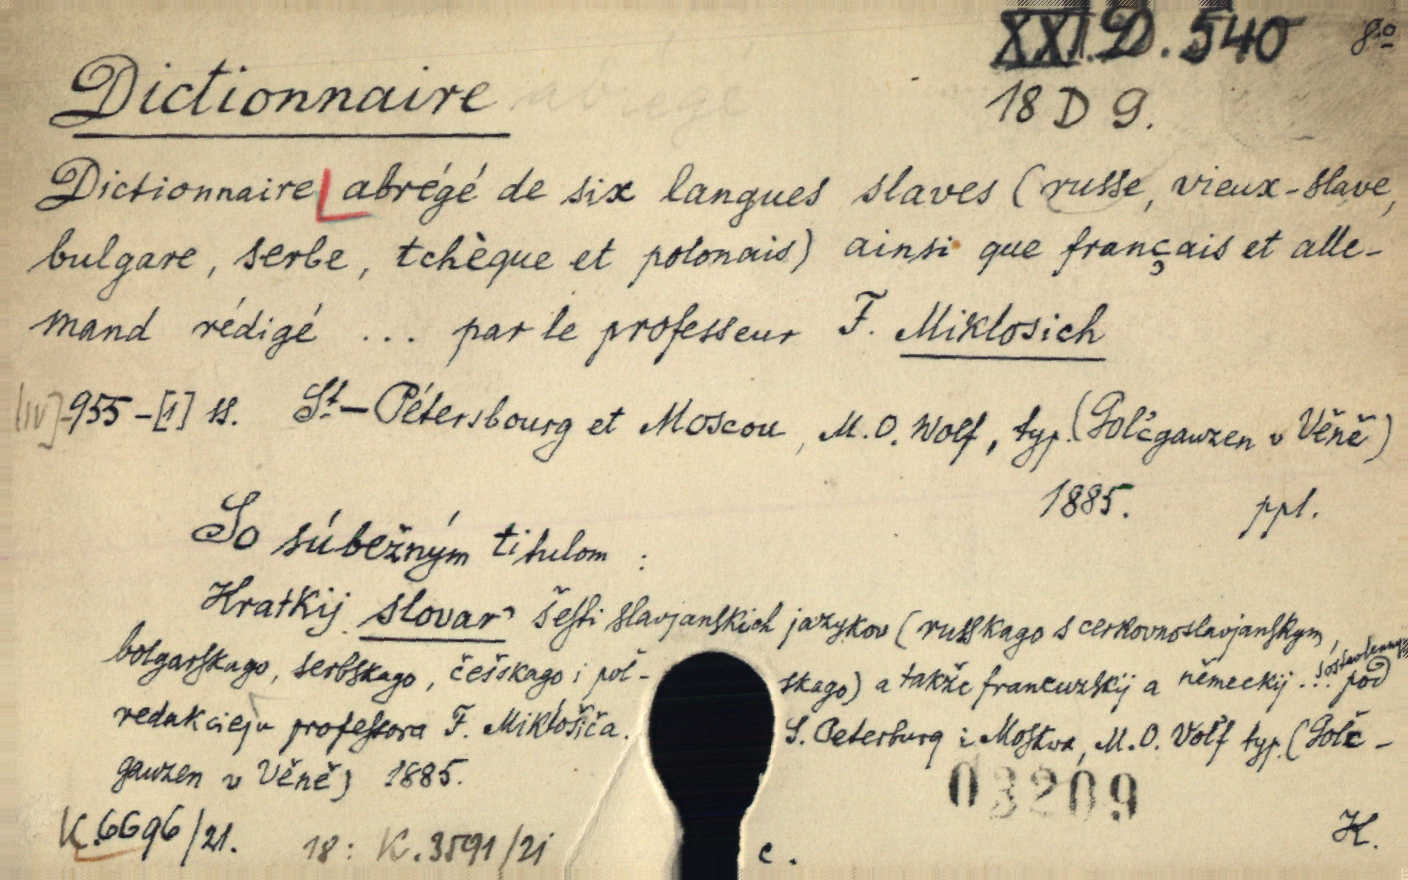 XXI.D.540 8°
18 D 9.
Dictionnaire abrégé
Dictionnaire abrégé de six langues slaves (russe, vieux-slave,
bulgare, serbe, tchèque et polonais) ainsi que français et alle-
mand rédigé ... par le professeur F. Miklosich
[IV]-955-[1] ss. St-Pétersbourg et Moscou, M.O. Wolf, typ. (Goľcgauzen v Věně)
1885. ppl.
So súbežným titulom :
Kratkij slovar' šesti slavjanskich jazykov (russkago s cerkovnoslavjanskym,
bolgarskago, serbskago, češskago i poľ-skago) a takže francuzskij a německij ... pod
redakcieju professora F. Miklošiča. S. Peterburg i Moskva, M.O. Voľf typ. (Goľc-
gauzen v Věně) 1885.
03209
K.6696/21. 18: K.3591/21 c. H.